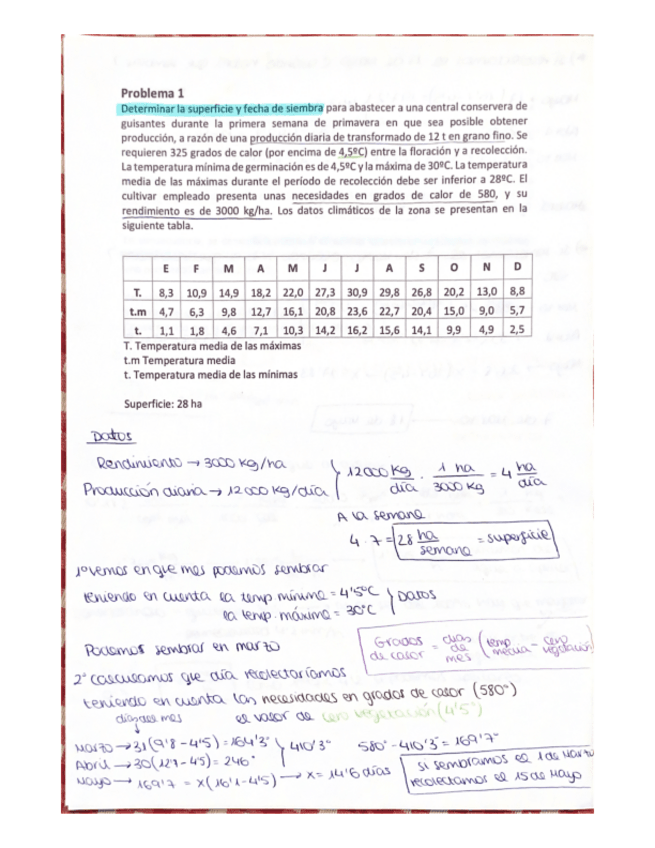 Problema 1
Determinar la superficie y fecha de siembra para abastecer a una central conservera de
guisantes durante la primera semana de primavera en que sea posible obtener
producción, a razón de una producción diaria de transformado de 12 t en grano fino. Se
requieren 325 grados de calor (por encima de 4,5ºC) entre la floración y a recolección.
La temperatura mínima de germinación es de 4,5ºC y la máxima de 30ºC. La temperatura
media de las máximas durante el período de recolección debe ser inferior a 28ºC. El
cultivar empleado presenta unas necesidades en grados de calor de 580, y su
rendimiento es de 3000 kg/ha. Los datos climáticos de la zona se presentan en la
siguiente tabla.
E F M A M J J A S O N D
T. 8,3 10,9 14,9 18,2 22,0 27,3 30,9 29,8 26,8 20,2 13,0 8,8
t.m 4,7 6,3 9,8 12,7 16,1 20,8 23,6 22,7 20,4 15,0 9,0 5,7
t. 1,1 1,8 4,6 7,1 10,3 14,2 16,2 15,6 14,1 9,9 4,9 2,5
T. Temperatura media de las máximas
t.m Temperatura media
t. Temperatura media de las mínimas
Superficie: 28 ha
Datos
Rendimiento → 3000 kg/ha
Producción diaria → 12000 kg/día
12000 kg/día · 1 ha/3000 kg = 4 ha/día
A la semana
4 · 7 = 28 ha/semana = superficie
1º vemos en que mes podemos sembrar
teniendo en cuenta la temp mínima = 4'5ºC
la temp. máxima = 30ºC } Datos
Podemos sembrar en marzo
Grados de calor = dias de mes (temp media - cero vegetación)
2º calculamos que día recolectaríamos
teniendo en cuenta las necesidades en grados de calor (580º)
dias del mes el valor de cero vegetación (4'5º)
Marzo → 31(9'8 - 4'5) = 164'3º
Abril → 30(12'7 - 4'5) = 246º } 410'3º 580º - 410'3º = 169'7º
Mayo → 169'7 = x(16'1 - 4'5) → x = 14'6 días
si sembramos el 1 de Marzo
recolectamos el 15 de Mayo